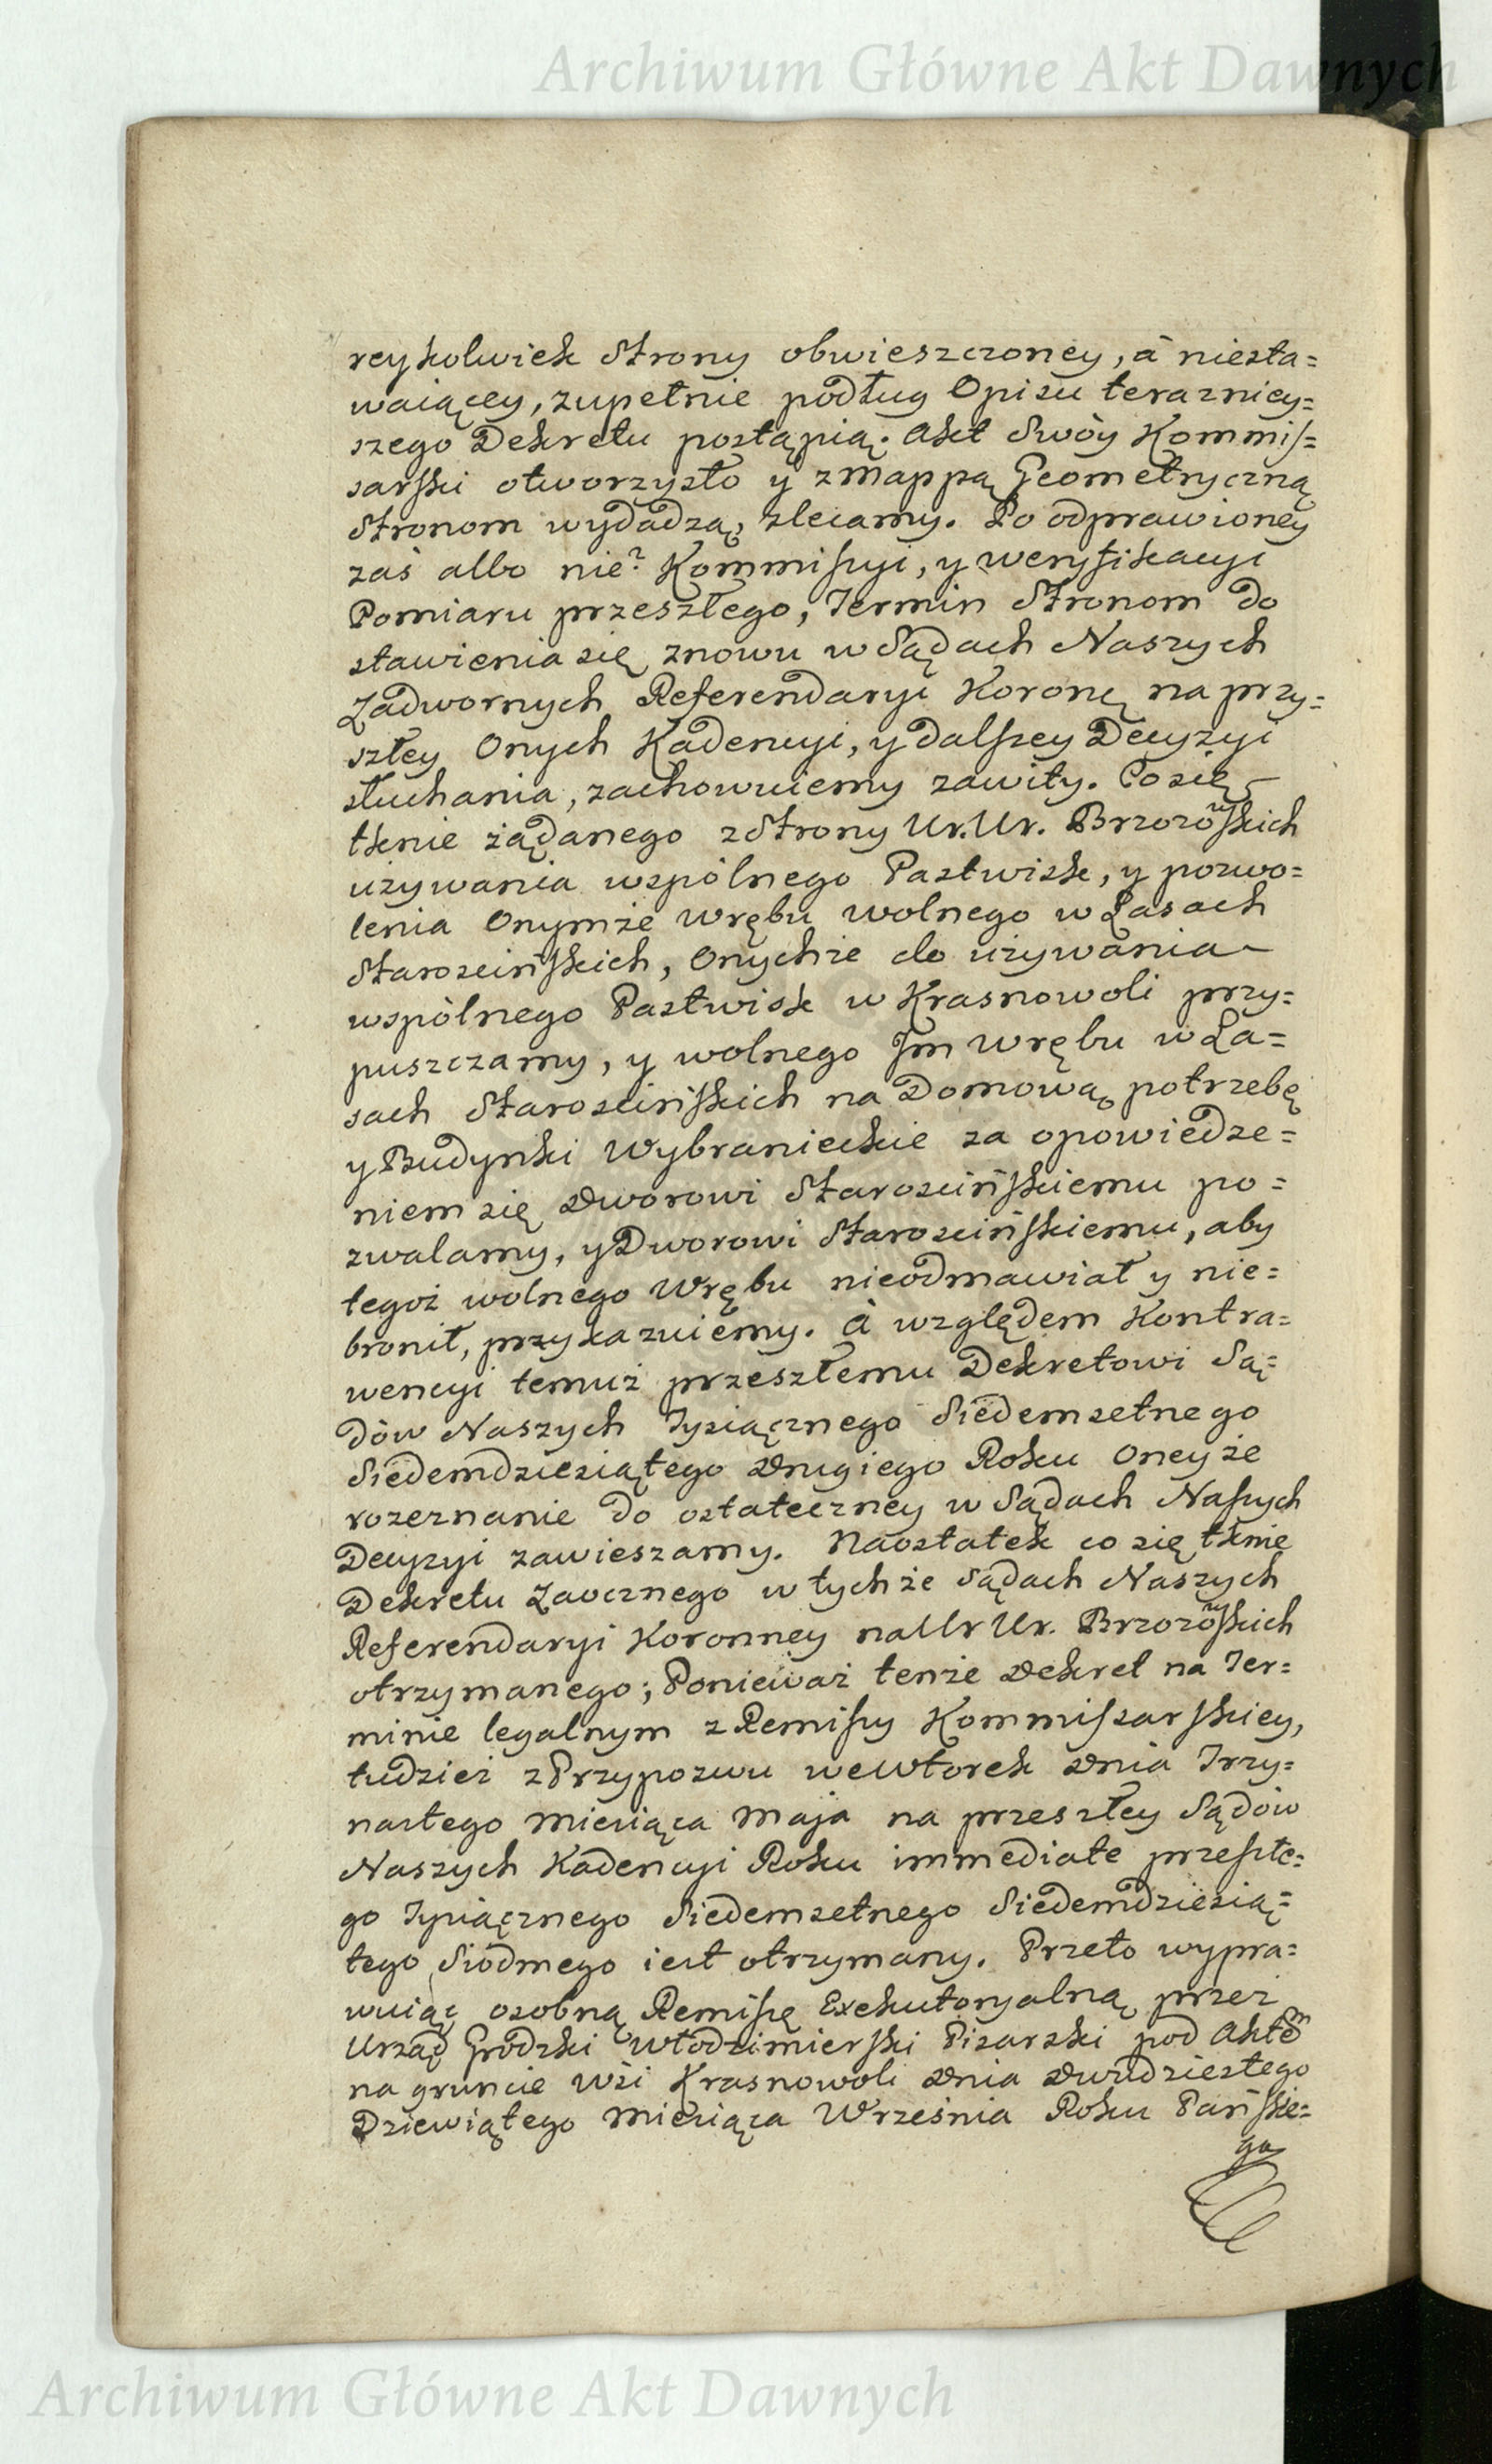 Archiwum Główne Akt Dawnych
reykolwiek Strony obwieszczoney, à niesta=
waiącey, zupełnie podług Opisu terazniey=
szego Dekretu postąpią. Akt Swóy Kommiſ=
sarſki otworzysto y z Mappą Geometryczną
Stronom wydadzą, zlecamy. Po odprawioney
zaś albo nie? Kommiſsyi, y weryfikacyi
Pomiaru przeszłego, Termin Stronom do
stawienia się znowu w Sądach Naszych
Zadwornych Referendaryi Koronę na przy=
szłey Onych Kadencyi, y dalſzey Decyzyi
słuchania, zachowuiemy zawity. Co się
tknie żądanego z Strony Ur. Ur. Brzozowſkich
używania wspólnego Pastwisk, y pozwo=
lenia Onymże Wrębu wolnego w Lasach
Staroscińſkich, Onychże do używania
wspólnego Pastwisk w Krasnowoli przy=
puszczamy, y wolnego Im Wrębu w La=
sach Staroscińſkich na Domową potrzebę
y Budynki Wybranieckie za opowiedze=
niem się Dworowi Staroscińſkiemu po=
zwalamy, y Dworowi Staroscińſkiemu, aby
tegoż wolnego Wrębu nieodmawiał y nie=
bronił, przykazuiemy. à względem Kontra=
wencyi temuż przeszłemu Dekretowi Są=
dów Naszych Tysiącznego Siedemsetnego
Siedemdziesiątego Drugiego Roku Oneyże
rozeznanie do ostateczney w Sądach Naſzych
Decyzyi zawieszamy. Naostatek co się tknie
Dekretu Zaocznego w tychże Sądach Naszych
Referendaryi Koronney na Ur Ur. Brzozowſkich
otrzymanego; Ponieważ tenże Dekret na Ter=
minie legalnym z Remiſsy Kommiſsarſkiey,
tudzież z Przypozwu we Wtorek Dnia Trzy=
nastego Miesiąca Maja na przeszłey Sądów
Naszych Kadencyi Roku immediate przeſzłe=
go Tysiącznego Siedemsetnego Siedemdziesią=
tego Siodmego iest otrzymany. Przeto wypra=
wuiąc osobną Remiſsę Exekutoryalną przez
Urząd Grodzki Włodzimierſki Pisarski pod Aktem
na gruncie Wsi Krasnowoli Dnia Dwudziestego
Dziewiątego Miesiąca Września Roku Pańſkie=
go
Archiwum Główne Akt Dawnych